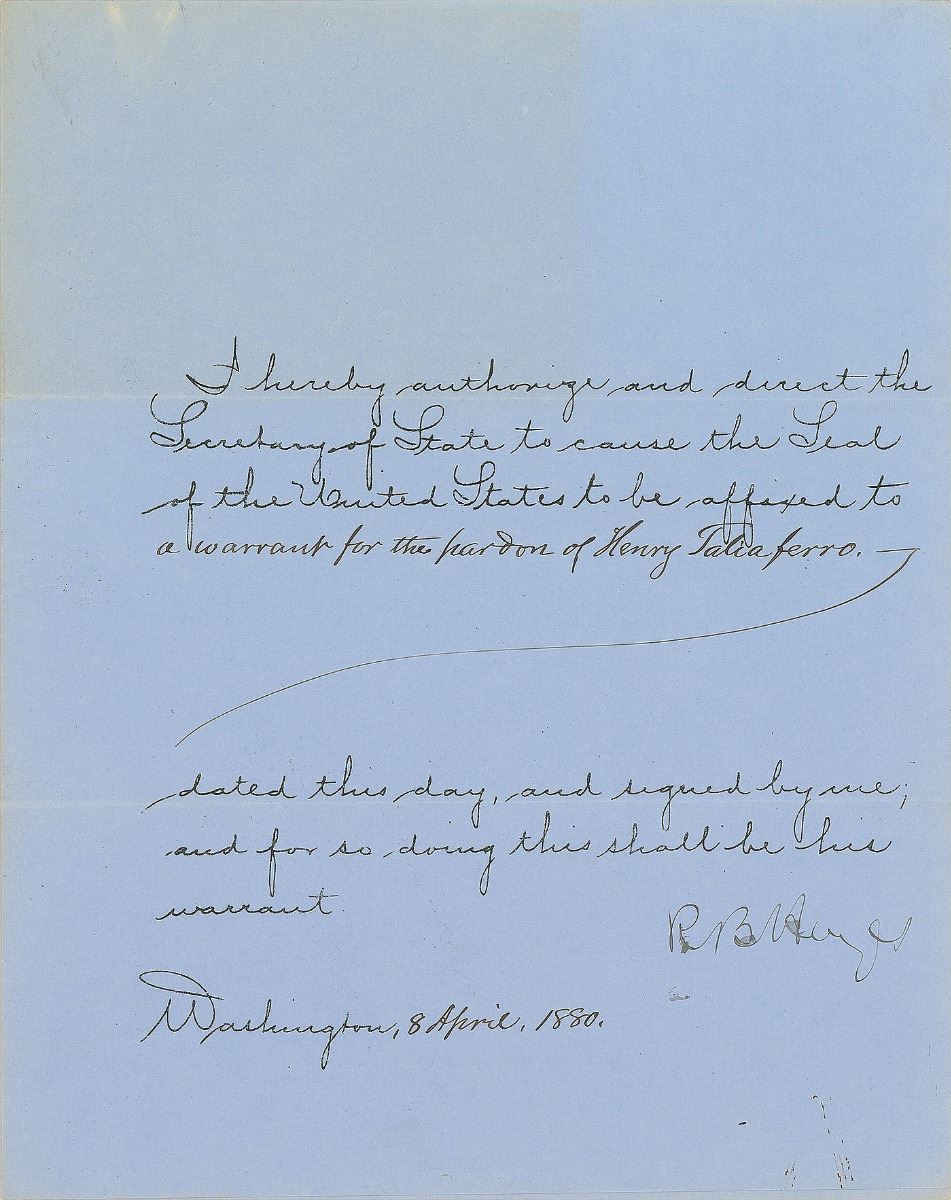 I hereby authorize and direct the
Secretary of State to cause the Seal
of the United States to be affixed to
a warrant for the pardon of Henry Taliaferro.
dated this day, and signed by me;
and for so doing this shall be his
warrant.
R B Hayes
Washington, 8 April, 1880.